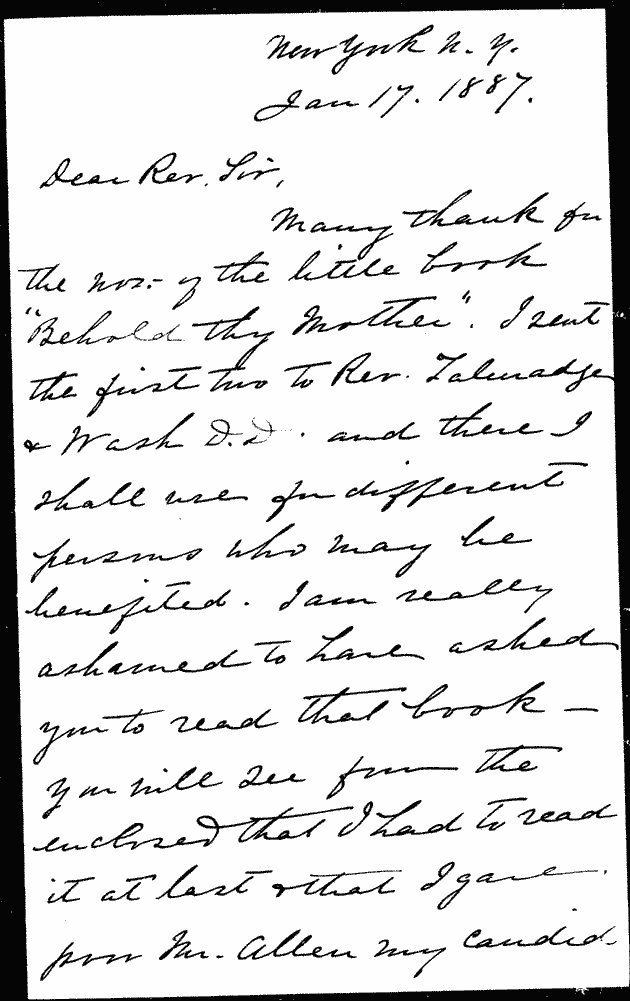 New York N. Y.
Jan 17. 1887.
Dear Rev. Sir,
Many thank for
the nos. of the little book
"Behold thy Mother". I sent
the first two to Rev. Talmadge
& Wash D.D. and there I
shall use for different
persons who may be
benefited. I am really
ashamed to have asked
you to read that book —
You will see from the
enclosed that I had to read
it at last & that I gave
poor Mr. Allen my candid